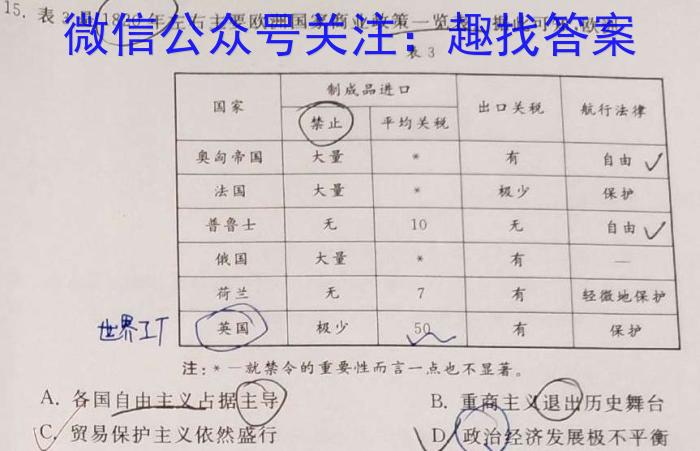 15. 表3是1820年左右主要欧洲国家商业政策一览表。据此可知,欧洲
微信公众号关注：趣找答案
表 3
国家 制成品进口 出口关税 航行法律
禁止 平均关税
奥匈帝国 大量 * 有 自由
法国 大量 * 极少 保护
普鲁士 无 10 无 自由
俄国 大量 * 有 —
荷兰 无 7 有 轻微地保护
世界工厂 英国 极少 50 有 保护
注：*—就禁令的重要性而言一点也不显著。
A. 各国自由主义占据主导 B. 重商主义退出历史舞台
C. 贸易保护主义依然盛行 D. 政治经济发展极不平衡